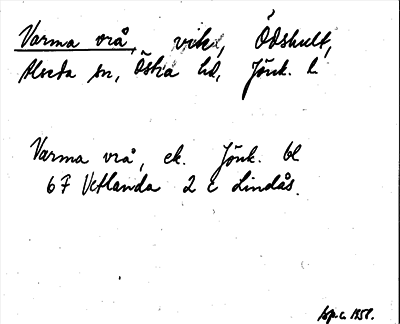 Varma vrå, vik, Ödshult,
Alseda sn, Östra hd, Jönk. l.
Varma vrå, ek. Jönk. bl
6F Vetlanda 2 c Lindås.
1958.